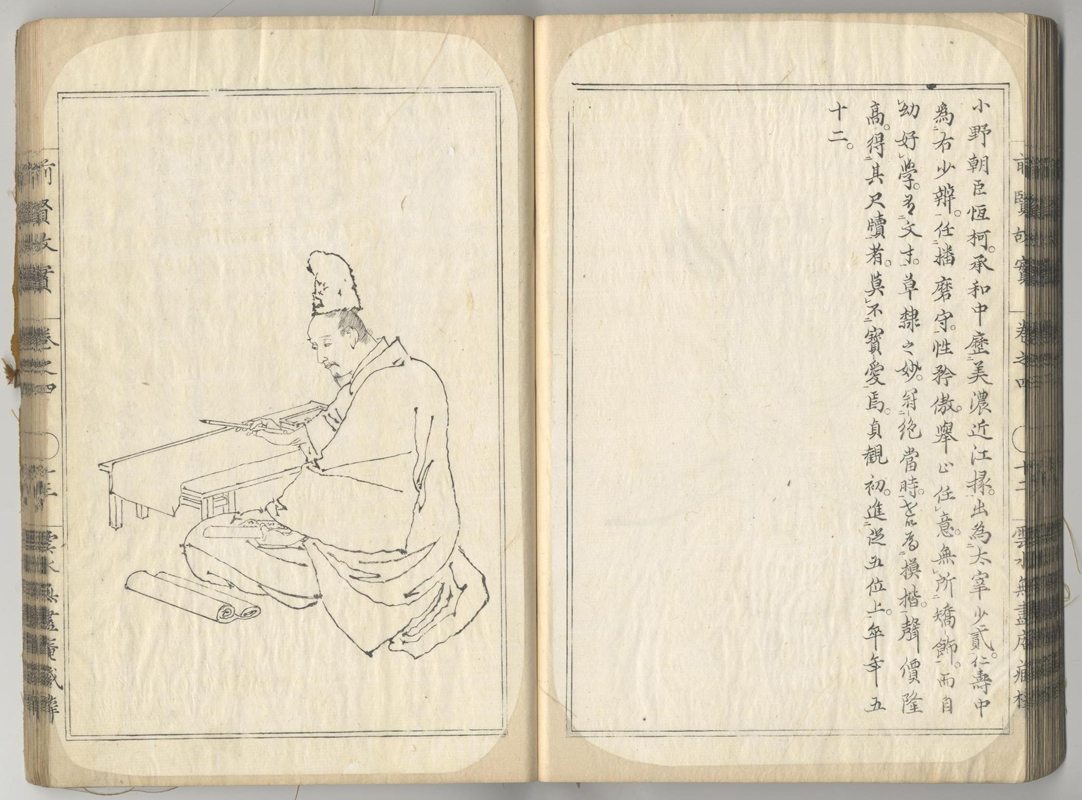 小野朝臣恆柯。承和中歷美濃近江掾。出為太宰少貳。仁壽中
為右少辨。任播磨守。性矜傲。舉止任意。無所矯飾。而自
幼好學。有文才。草隸之妙。冠絕當時。皆為模楷。聲價隆
高。得其尺牘者。莫不寶愛焉。貞觀初。進從五位上。卒年五
十二。
前賢故實 卷之四 十二 雲水無盡庵藏梓
前賢故實 卷之四 雲水無盡庵藏梓